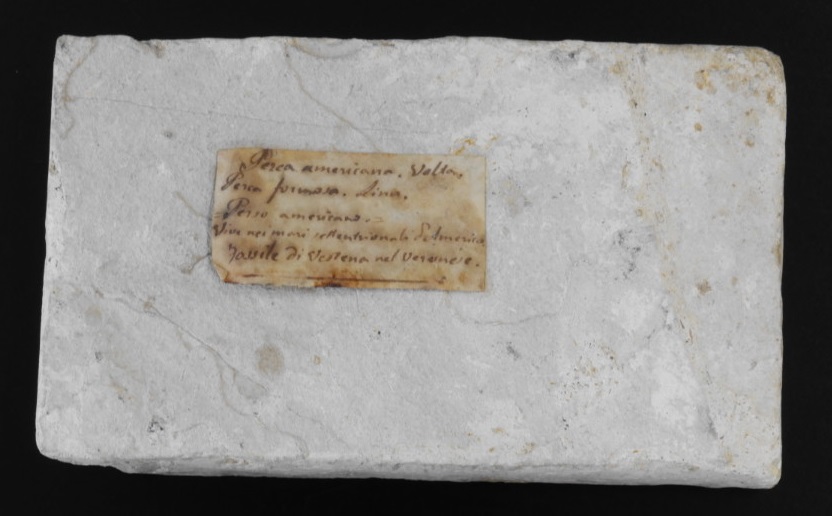 Perca americana. Volta.
Perca formosa. Linn.
Perso americano.
Vive nei mari settentrionali d'America
Fossile di Vestena nel Veronese.